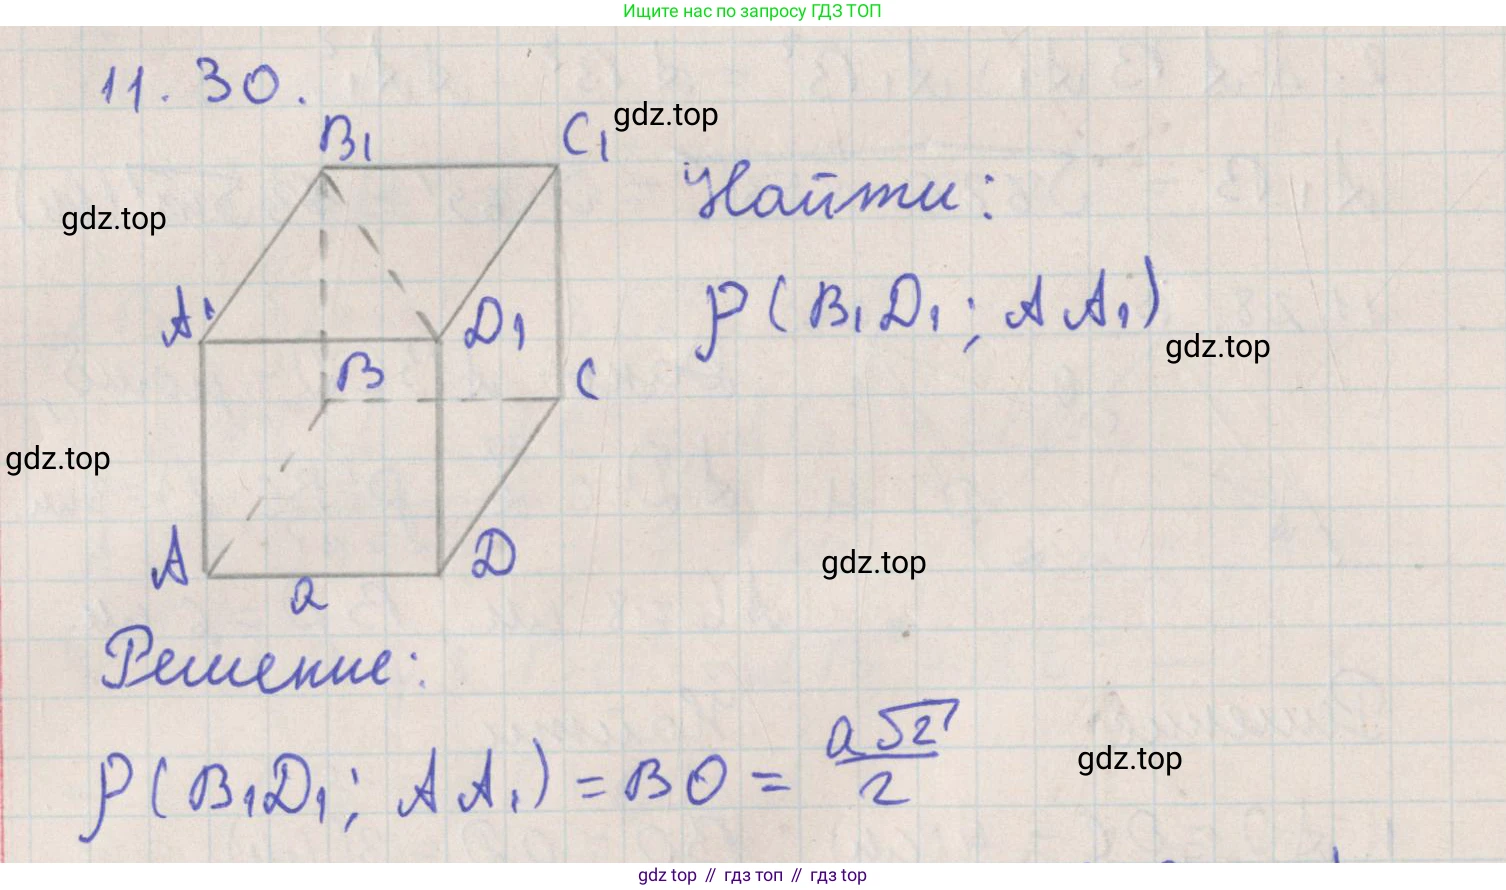 Ищите нас по запросу ГДЗ ТОП
11.30.
B₁
C₁
gdz.top
Найти:
gdz.top
A₁
D₁
ρ(B₁D₁; AA₁)
gdz.top
B
C
gdz.top
A
D
gdz.top
a
Решение:
ρ(B₁D₁; AA₁) = BO = a√2/2
gdz.top
gdz top // гдз топ // гдз top